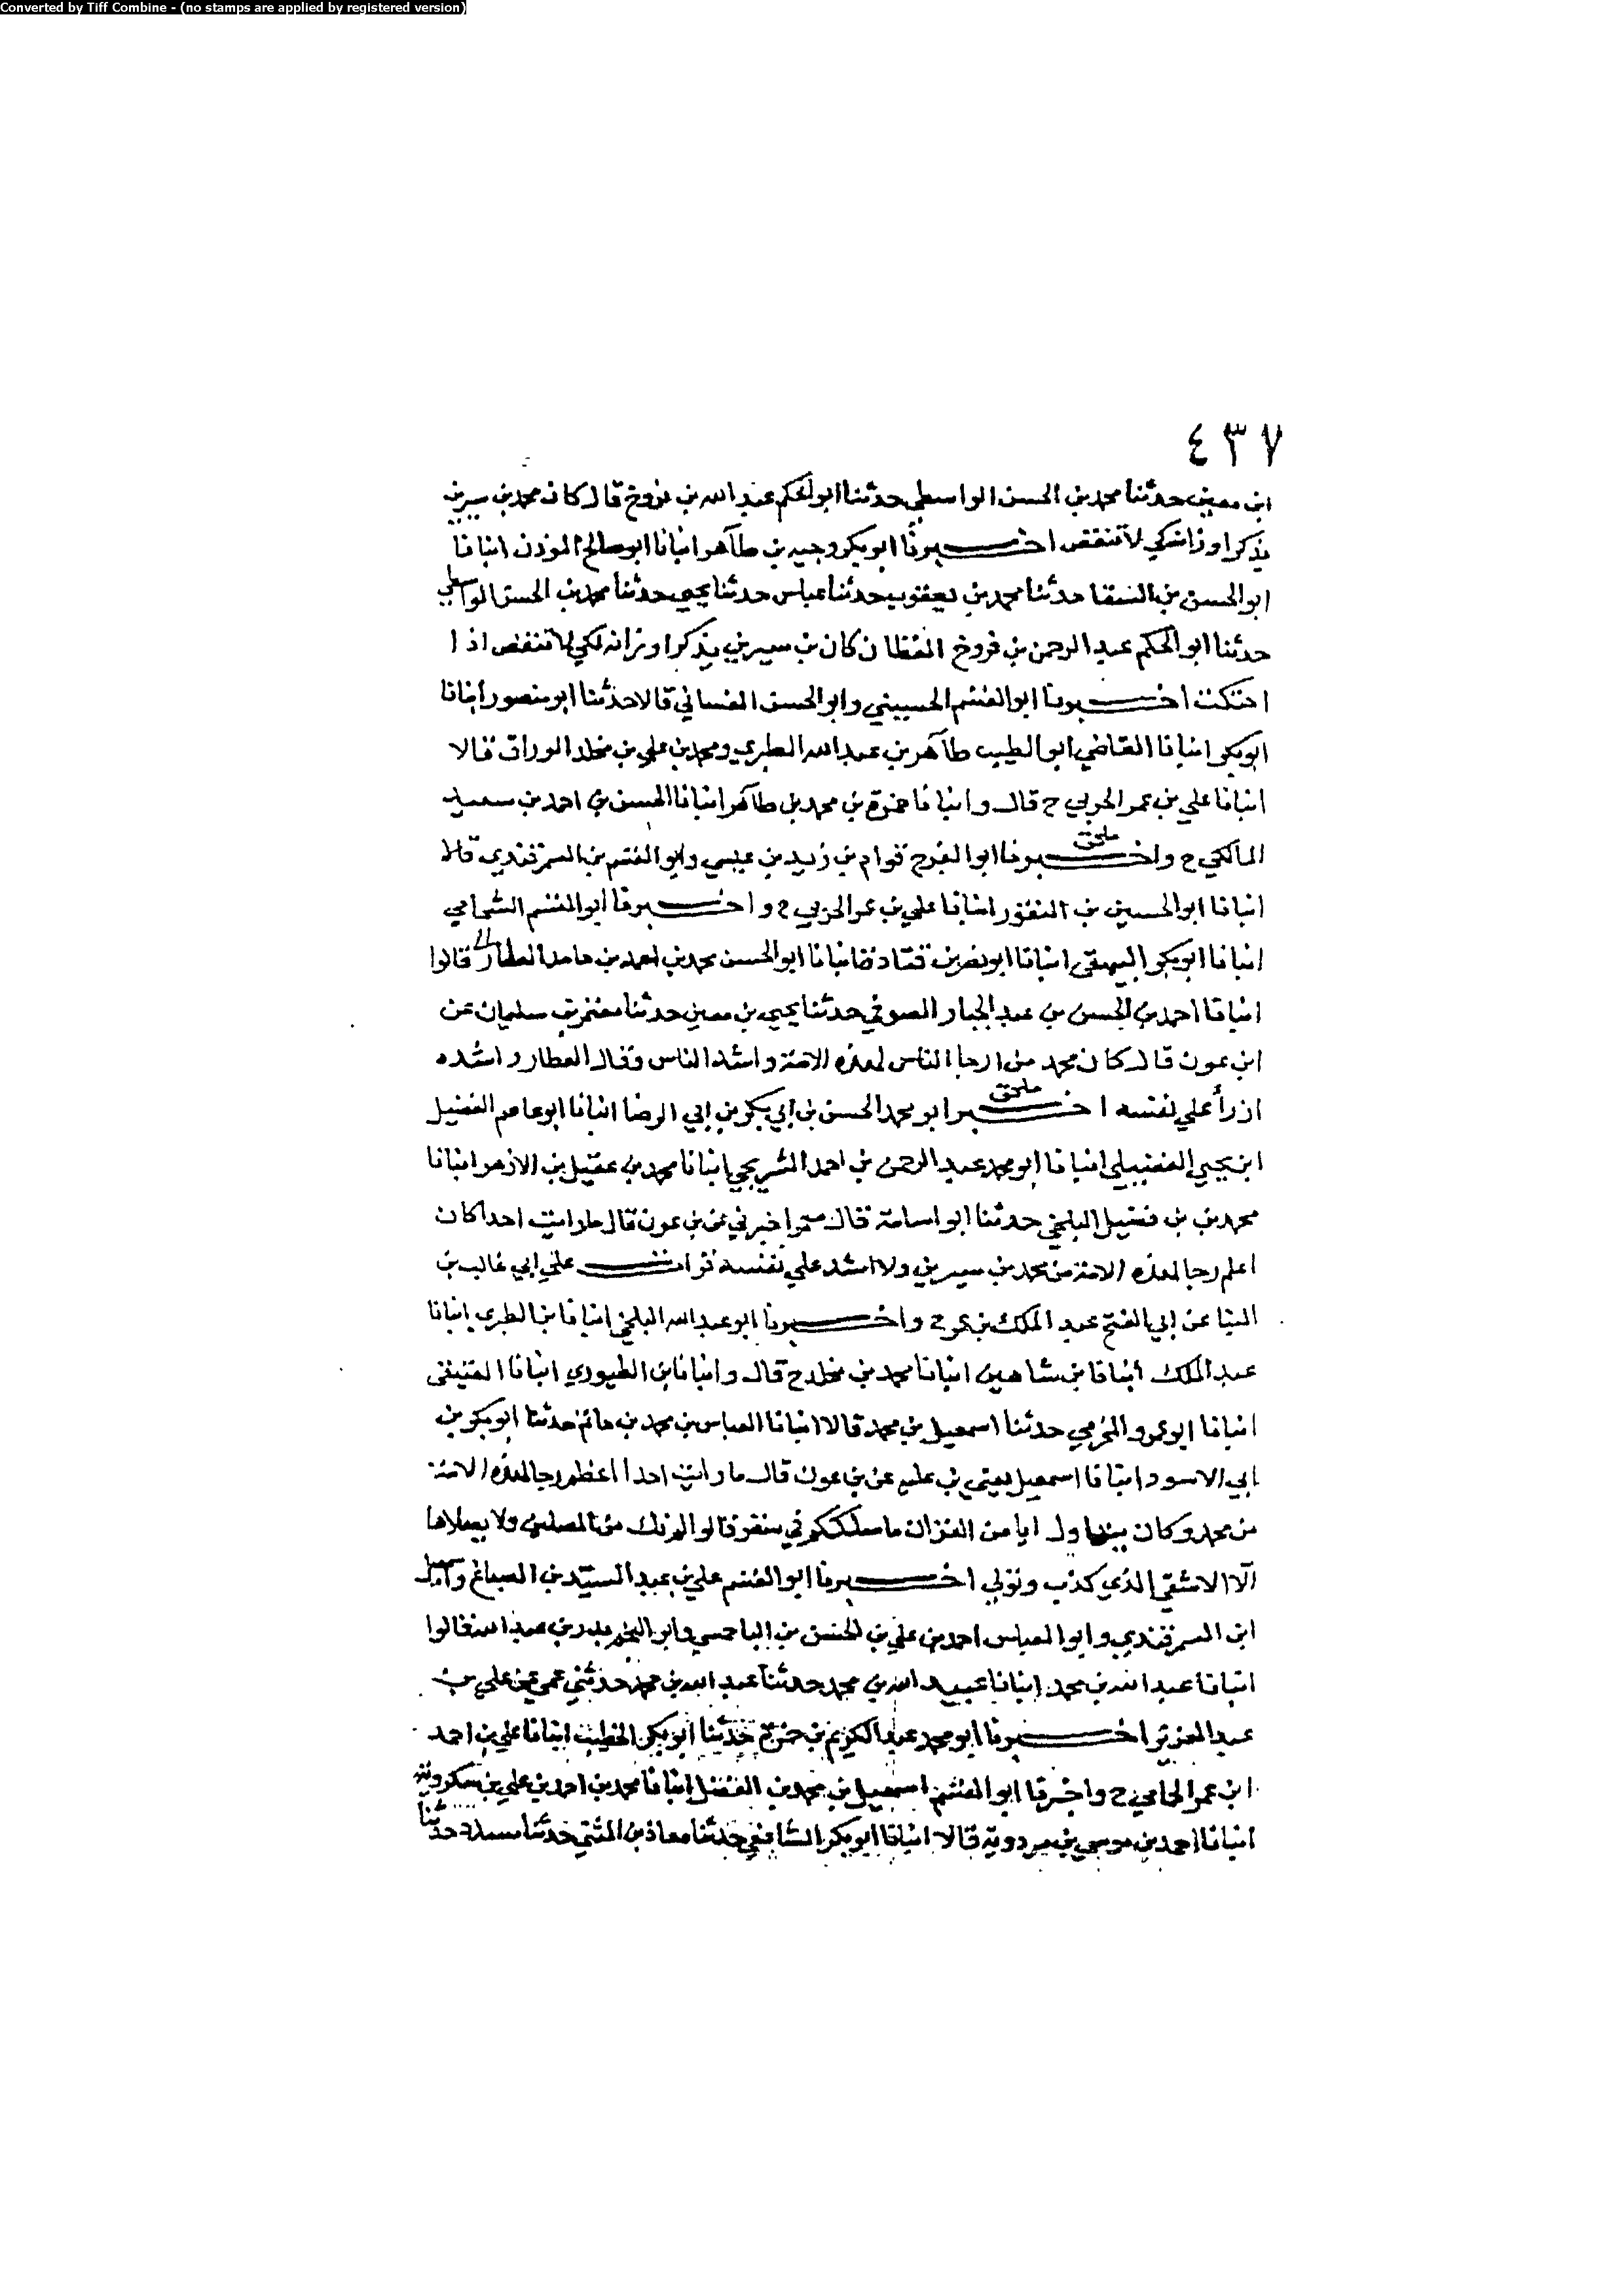 Converted by Tiff Combine - (no stamps are applied by registered version)
٤٣٧
ابن معين حدثنا محمد بن الحسن الواسطي حدثنا ابو الحكم عبد الله بن فروخ قال كان محمد بن سيرين
يذكر اوزانه لكي لا تنقص اخبرنا ابو بكر وجيه بن طاهر انبانا ابو صالح الموذن انبانا
ابو الحسن بن السقا حدثنا محمد بن يعقوب حدثنا عباس حدثنا يحيى حدثنا محمد بن الحسن الواسطي
حدثنا ابو الحكم عبد الرحمن بن فروخ القطان كان بن سيرين يذكر اوزانه لكي لا تنقص اذا
احتكت اخبرنا ابو القسم الحسيني وابو الحسن الغساني قالا حدثنا ابو منصور انبانا
ابو بكر انبانا القاضي ابو الطيب طاهر بن عبد الله الطبري ومحمد بن علي بن مخلد الوراق قالا
انبانا علي بن عمر الحربي ح قال وانبانا حمزة بن محمد بن طاهر انبانا الحسن بن احمد بن سعيد
المالكي ح واخبرنا ملحق ابو الفرج قوام بن زيد بن عيسى وابو القسم بن السمرقندي قالا
انبانا ابو الحسين بن النقور انبانا علي بن عمر الحربي ح واخبرنا ابو القسم الشحامي
انبانا ابو بكر البيهقي انبانا ابو نصر بن قتادة انبانا ابو الحسن محمد بن احمد بن حامد العطار قالوا
انبانا احمد بن الحسن بن عبد الجبار الصوفي حدثنا يحيى بن معين حدثنا معتمر بن سليمان عن
ابن عون قال كان محمد من ارجا الناس لهذه الامة واشد الناس وقال العطار واشده
ازرأ علي نفسه اخبر ملحق ابو محمد الحسن بن ابي بكر بن ابي الرضا انبانا ابو عاصم الفضيل
ابن يحيى الفضيلي انبانا ابو محمد عبد الرحمن بن احمد الشريحي انبانا محمد بن عقيل بن الازهر انبانا
محمد بن بن فضيل البلخي حدثنا ابو اسامة قال اخبرني عن بن عون قال ما رايت احدا كان
اعلم رجا لهذه الامة من محمد بن سيرين ولا اشد علي نفسه قرات علي ابي غالب بن
البنا عن ابي الفتح عبد الملك بن عمر ح واخبرنا ابو عبد الله البلخي انبانا بن الطبري انبانا
عبد الملك انبانا بن شاهين انبانا محمد بن مخلد ح قال وانبانا بن الطيوري انبانا العتيقى
انبانا ابو عمرو المخرمي حدثنا اسمعيل بن محمد قالا انبانا العباس بن محمد بن حاتم حدثنا ابو بكر بن
ابي الاسود انبانا اسمعيل يعني بن علية عن بن عون قال ما رايت احدا اعظم رجا لهذه الامة
من محمد وكان يتاول ايا من القران ما سلككم في سقر قالوا لم نك من المصلين ولا يصلاها
الا الاشقى الذي كذب وتولى اخبرنا ابو القسم علي بن عبد السيد بن الصباغ واسمعيل
ابن السمرقندي وابو العباس احمد بن علي بن الحسن بن وابو النجم بدر بن عبد الله قالوا
انبانا عبد الله بن محمد انبانا عبيد الله بن محمد حدثنا عبد الله بن محمد حدثني عمي علي بن
عبد العزيز اخبرنا ابو محمد عبد الكريم بن حمزة حدثنا ابو بكر الخطيب انبانا علي بن احمد
ابن عمر الحامي ح واخبرنا ابو القسم اسمعيل بن محمد بن الفضل انبانا محمد بن احمد بن علي بن سكروية
انبانا احمد بن موسى بن مردوية قالا انبانا ابو بكر الشافعي حدثنا معاذ بن المثنى حدثنا مسدد حدثنا